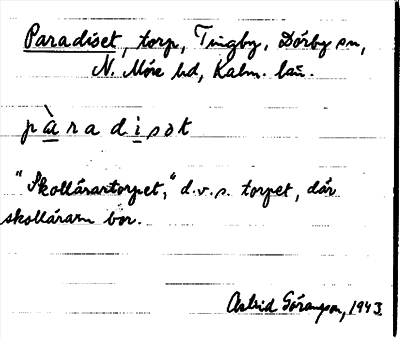 Paradiset, torp, Tingby, Dörby sn,
N. Möre hd, Kalm. län.
pàradisət
"Skollärartorpet," d.v.s. torpet, där
skolläraren bor.
Astrid Göransson, 1943